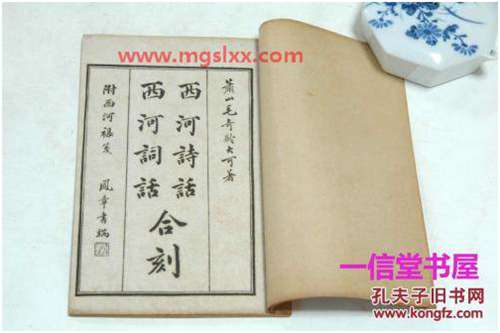 www.mgslxx.com
蕭山毛奇齡大可著
西河詩話
西河詞話
合刻
附西河褉箋
鳳章書耑
一信堂书屋
孔夫子旧书网
kongfz.com